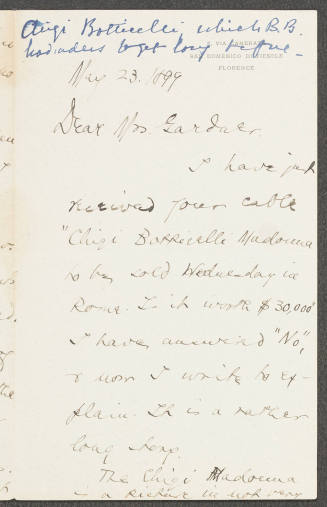 Chigi Botticelli, which B.B.
had orders to get long before -
VIA CAMERATA
SAN DOMENICO DI FIESOLE
FLORENCE
Nov 23. 1899
Dear Mrs. Gardner.
I have just
received your cable
"Chigi Botticelli Madonna
to be sold Wednesday in
Rome. Is it worth $30,000"
I have answered "No",
& now I write to ex-
plain. It is a rather
long story.
The Chigi Madonna
is a picture in not very